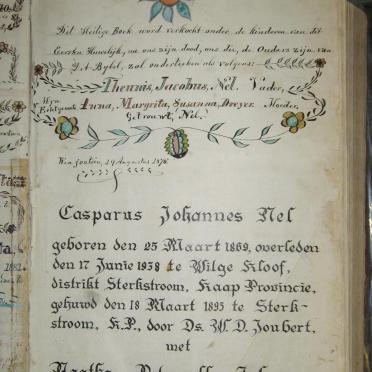 Dit Heilige Boek word verkocht onder de kinderen van dit
Eersten Huwelijk, na ons zijn dood, ons die, de Ouders zijn van
D.A. Bybel, zal onderteeken als volgens:
Theunis, Jacobus, Nel. Vader,
Myn Echtgenoot Anna, Margrita, Susanna, Dreyer Moeder,
Getrouwt, Nel.
29 Augustus 1876
Casparus Johannes Nel
geboren den 25 Maart 1869, overleden
den 17 Junie 1938 te Wilge Kloof,
distrikt Sterkstroom, Kaap Provincie,
gehuwd den 18 Maart 1895 te Sterk-
stroom, K.P., door Ds. W. D. Joubert,
met